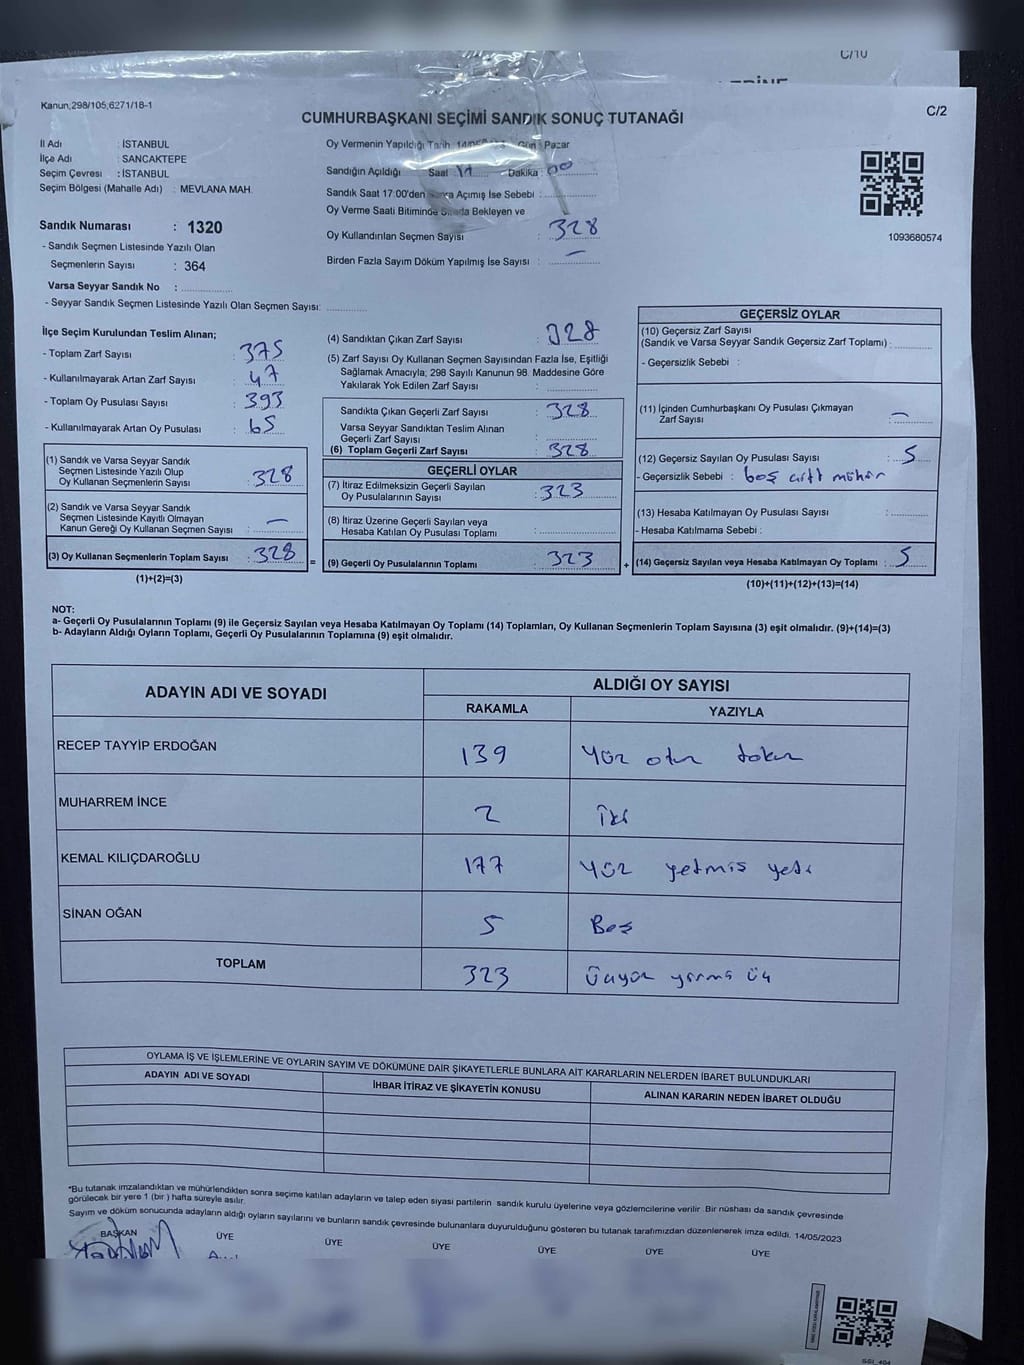 C/10
Kanun,298/105,6271/18-1
CUMHURBAŞKANI SEÇİMİ SANDIK SONUÇ TUTANAĞI
C/2
İl Adı : İSTANBUL
İlçe Adı : SANCAKTEPE
Seçim Çevresi : İSTANBUL
Seçim Bölgesi (Mahalle Adı) : MEVLANA MAH.
Sandık Numarası : 1320
- Sandık Seçmen Listesinde Yazılı Olan
Seçmenlerin Sayısı : 364
Varsa Seyyar Sandık No :
- Seyyar Sandık Seçmen Listesinde Yazılı Olan Seçmen Sayısı:
Oy Vermenin Yapıldığı Tarih Gün : Pazar
Sandığın Açıldığı Saat Dakika : 00
Sandık Saat 17:00'den Açımış İse Sebebi :
Oy Verme Saati Bitiminde Sırada Bekleyen ve
Oy Kullandırılan Seçmen Sayısı : 328
Birden Fazla Sayım Döküm Yapılmış İse Sayısı : —
1093680574
İlçe Seçim Kurulundan Teslim Alınan;
- Toplam Zarf Sayısı : 375
- Kullanılmayarak Artan Zarf Sayısı : 47
- Toplam Oy Pusulası Sayısı : 393
- Kullanılmayarak Artan Oy Pusulası : 65
(1) Sandık ve Varsa Seyyar Sandık
Seçmen Listesinde Yazılı Olup
Oy Kullanan Seçmenlerin Sayısı : 328
(2) Sandık ve Varsa Seyyar Sandık
Seçmen Listesinde Kayıtlı Olmayan
Kanun Gereği Oy Kullanan Seçmen Sayısı : —
(3) Oy Kullanan Seçmenlerin Toplam Sayısı : 328
(1)+(2)=(3)
(4) Sandıktan Çıkan Zarf Sayısı : 328
(5) Zarf Sayısı Oy Kullanan Seçmen Sayısından Fazla İse, Eşitliği
Sağlamak Amacıyla; 298 Sayılı Kanunun 98. Maddesine Göre
Yakılarak Yok Edilen Zarf Sayısı :
Sandıkta Çıkan Geçerli Zarf Sayısı : 328
Varsa Seyyar Sandıktan Teslim Alınan
Geçerli Zarf Sayısı :
(6) Toplam Geçerli Zarf Sayısı : 328
GEÇERLİ OYLAR
(7) İtiraz Edilmeksizin Geçerli Sayılan
Oy Pusulalarının Sayısı : 323
(8) İtiraz Üzerine Geçerli Sayılan veya
Hesaba Katılan Oy Pusulası Toplamı :
= (9) Geçerli Oy Pusulalarının Toplamı : 323
GEÇERSİZ OYLAR
(10) Geçersiz Zarf Sayısı
(Sandık ve Varsa Seyyar Sandık Geçersiz Zarf Toplamı) :
- Geçersizlik Sebebi :
(11) İçinden Cumhurbaşkanı Oy Pusulası Çıkmayan
Zarf Sayısı : —
(12) Geçersiz Sayılan Oy Pusulası Sayısı : 5
- Geçersizlik Sebebi : boş çift mühür
(13) Hesaba Katılmayan Oy Pusulası Sayısı :
- Hesaba Katılmama Sebebi :
+ (14) Geçersiz Sayılan veya Hesaba Katılmayan Oy Toplamı : 5
(10)+(11)+(12)+(13)=(14)
NOT:
a- Geçerli Oy Pusulalarının Toplamı (9) ile Geçersiz Sayılan veya Hesaba Katılmayan Oy Toplamı (14) Toplamları, Oy Kullanan Seçmenlerin Toplam Sayısına (3) eşit olmalıdır. (9)+(14)=(3)
b- Adayların Aldığı Oyların Toplamı, Geçerli Oy Pusulalarının Toplamına (9) eşit olmalıdır.
ADAYIN ADI VE SOYADI
ALDIĞI OY SAYISI
RAKAMLA YAZIYLA
RECEP TAYYİP ERDOĞAN 139 Yüz otuz dokuz
MUHARREM İNCE 2 İki
KEMAL KILIÇDAROĞLU 177 Yüz yetmiş yedi
SİNAN OĞAN 5 Beş
TOPLAM 323 Üçyüz yirmi üç
OYLAMA İŞ VE İŞLEMLERİNE VE OYLARIN SAYIM VE DÖKÜMÜNE DAİR ŞİKAYETLERLE BUNLARA AİT KARARLARIN NELERDEN İBARET BULUNDUKLARI
ADAYIN ADI VE SOYADI
İHBAR İTİRAZ VE ŞİKAYETİN KONUSU
ALINAN KARARIN NEDEN İBARET OLDUĞU
*Bu tutanak imzalandıktan ve mühürlendikten sonra seçime katılan adayların ve talep eden siyasi partilerin sandık kurulu üyelerine veya gözlemcilerine verilir. Bir nüshası da sandık çevresinde
görülecek bir yere 1 (bir ) hafta süreyle asılır.
Sayım ve döküm sonucunda adayların aldığı oyların sayılarını ve bunların sandık çevresinde bulunanlara duyurulduğunu gösteren bu tutanak tarafımızdan düzenlenerek imza edildi. 14/05/2023
BAŞKAN ÜYE ÜYE ÜYE ÜYE ÜYE ÜYE